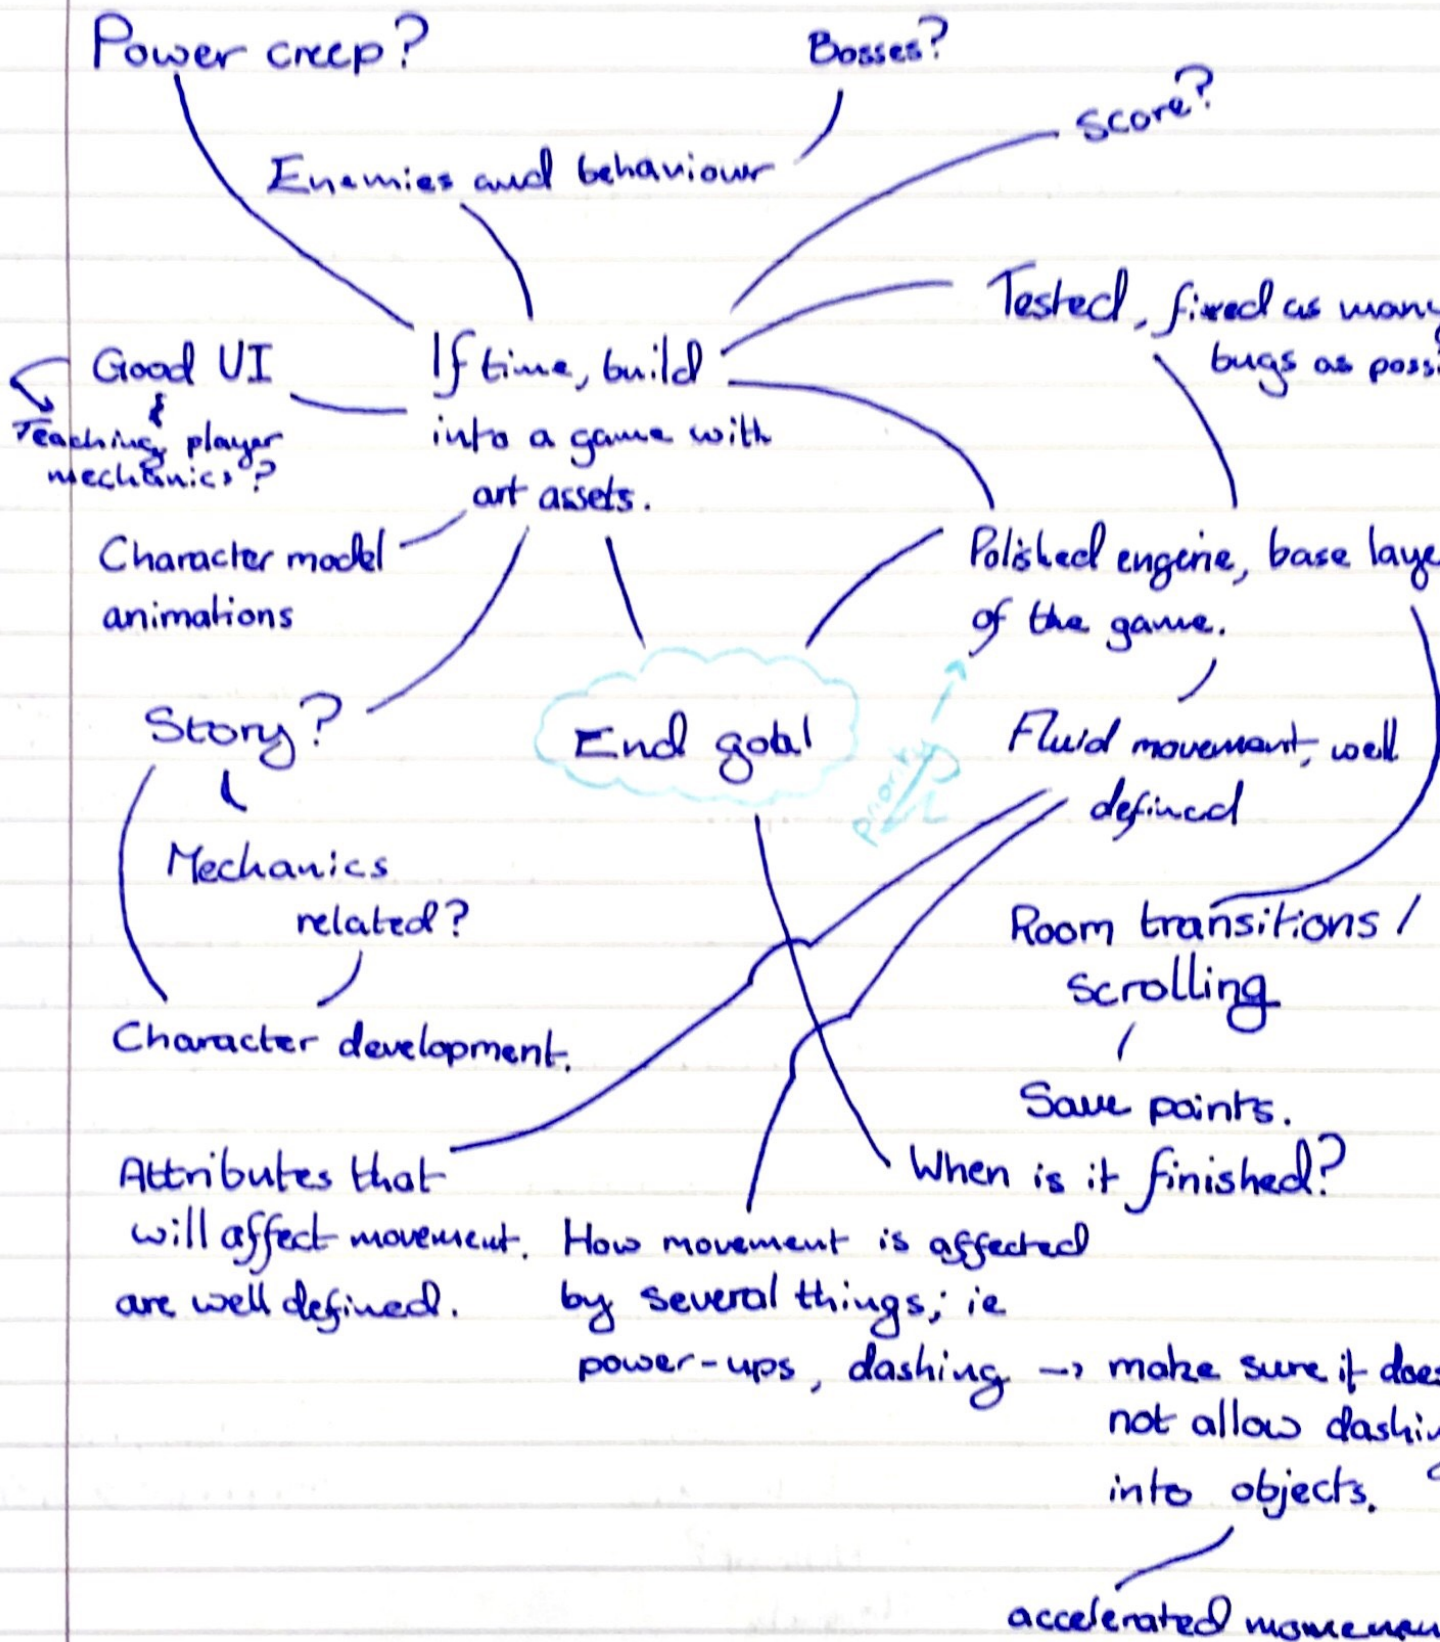 Power creep?
Bosses?
score?
Enemies and behaviour
Tested, fixed as many
bugs as poss
Good UI
&
Teaching player
mechanics?
If time, build
into a game with
art assets.
Character model
animations
Polished engine, base laye
of the game.
Story?
End goal
priority
Fluid movement, well
defined
Mechanics
related?
Room transitions /
scrolling
Character development.
Save points.
When is it finished?
Attributes that
will affect movement.
are well defined.
How movement is affected
by several things; ie
power-ups, dashing → make sure it does
not allow dashin
into objects.
accelerated